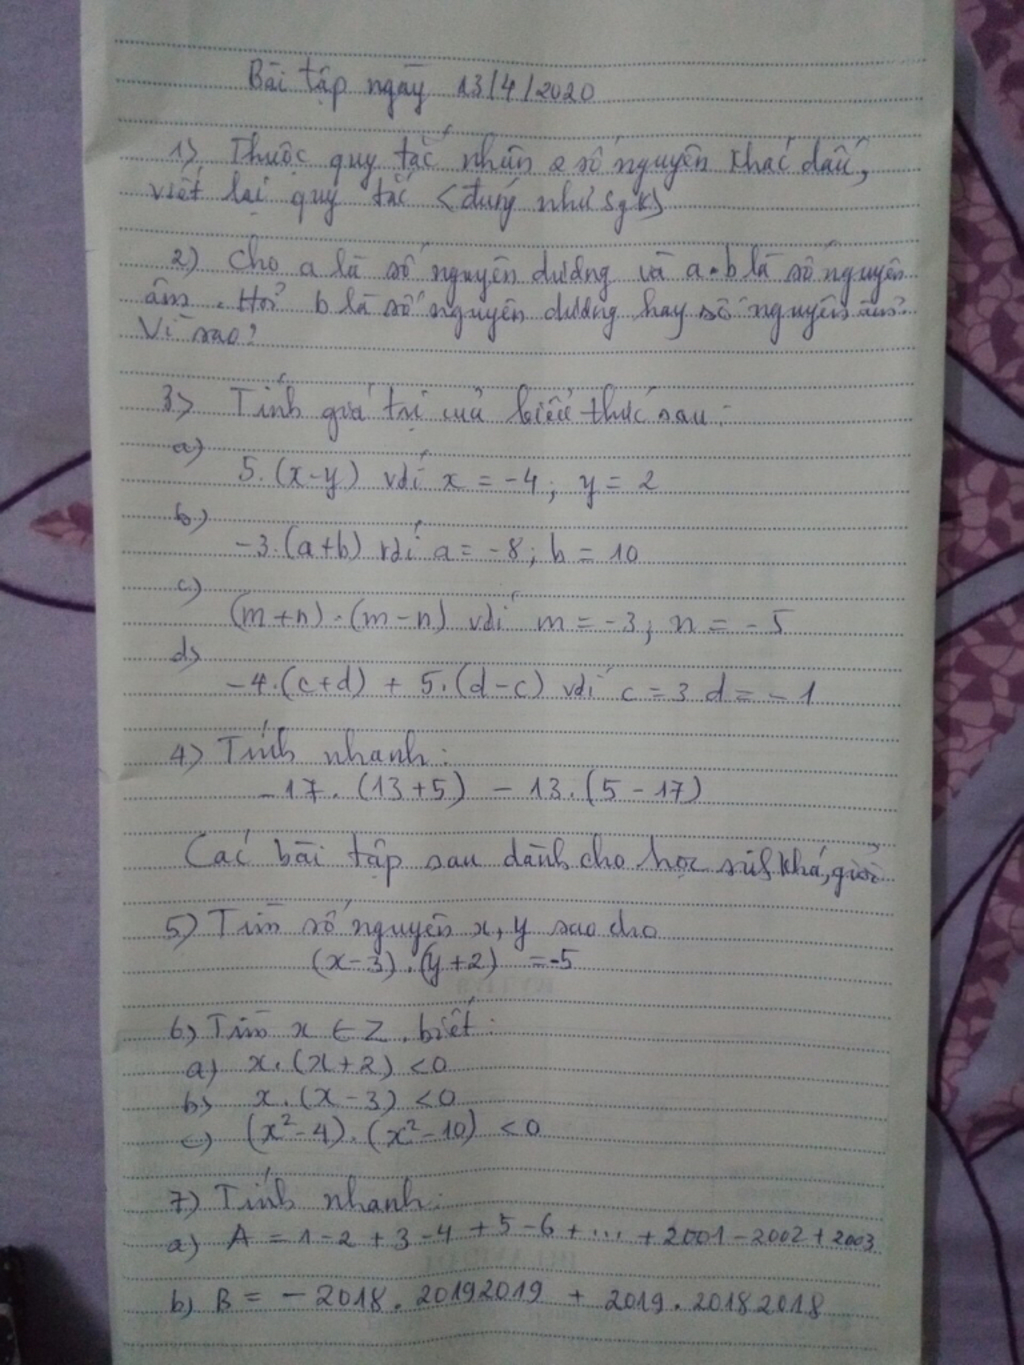 Bài tập ngày 13/4/2020
1) Thuộc quy tắc nhân 2 số nguyên khác dấu,
viết lại quy tắc <đúng như sgk>
2) Cho a là số nguyên dương và a.b là số nguyên
âm. Hỏi b là số nguyên dương hay số nguyên âm?
Vì sao?
3) Tính giá trị của biểu thức sau:
a)
5.(x-y) với x = -4; y = 2
b)
-3.(a+b) với a = -8; b = 10
c)
(m+n).(m-n) với m = -3; n = -5
d)
-4.(c+d) + 5.(d-c) với c = 3 d = -1
4) Tính nhanh:
-17.(13+5) - 13.(5-17)
Các bài tập sau dành cho học sinh khá, giỏi
5) Tìm số nguyên x, y sao cho
(x-3).(y+2) = -5
6) Tìm x ∈ Z, biết:
a) x.(x+2) < 0
b) x.(x-3) < 0
c) (x²-4).(x²-10) < 0
7) Tính nhanh:
a) A = 1-2+3-4+5-6+...+2001-2002+2003
b) B = -2018.20192019 + 2019.20182018